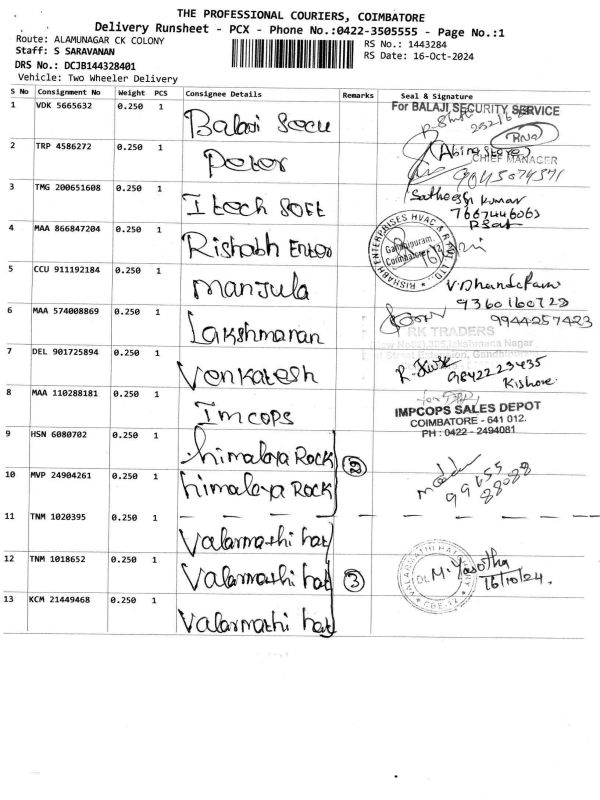 THE PROFESSIONAL COURIERS, COIMBATORE
Delivery Runsheet - PCX - Phone No.:0422-3505555 - Page No.:1
Route: ALAMUNAGAR CK COLONY
RS No.: 1443284
Staff: S SARAVANAN
RS Date: 16-Oct-2024
DRS No.: DCJB144328401
Vehicle: Two Wheeler Delivery
S No Consignment No Weight PCS Consignee Details Remarks Seal & Signature
1 VDK 5665632 0.250 1 Balaji Secu
For BALAJI SECURITY SERVICE
2 TRP 4586272 0.250 1 Peter
CHIEF MANAGER
3 TMG 200651608 0.250 1 I tech Soft
Satheesh Kumar
7667446063
4 MAA 866847204 0.250 1 Rishabh Enter
RISHABH ENTERPRISES HVAC & R PVT. LTD.
Gandhipuram,
Coimbatore-12
5 CCU 911192184 0.250 1 Manjula
9360160723
6 MAA 574008869 0.250 1 Lakshmanan
9944257423
RK TRADERS
7 DEL 901725894 0.250 1 Venkatesh
9842223435
Kishore
8 MAA 110288181 0.250 1 Imcops
IMPCOPS SALES DEPOT
COIMBATORE - 641 012.
PH : 0422 - 2494081
9 HSN 6080702 0.250 1 himalaya Rock
29
10 MVP 24904261 0.250 1 himalaya Rock
99655
88088
11 TNM 1020395 0.250 1 Valarmathi hat
12 TNM 1018652 0.250 1 Valarmathi hat
3
M. Yasotha
16/10/24.
CBE-12
13 KCM 21449468 0.250 1 Valarmathi hat